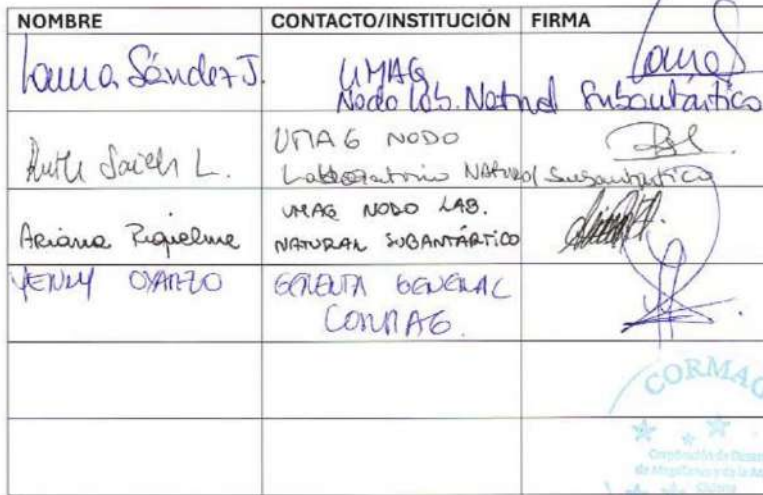 NOMBRE CONTACTO/INSTITUCIÓN FIRMA
Laura Sánchez J. UMAG
Nodo Lab. Natural Subantártico
Ruth L. UMAG NODO
Laboratorio NATURAL Subantártico
Ariana Riquelme UMAG NODO LAB.
NATURAL SUBANTÁRTICO
YENNY OYARZO GERENTA GENERAL
CORMAG.
CORMAG
Corporación de
de Magallanes y de la
Chilena